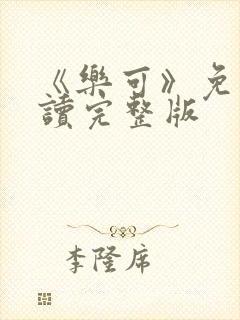 《樂可》免
讀完整版
李隆席